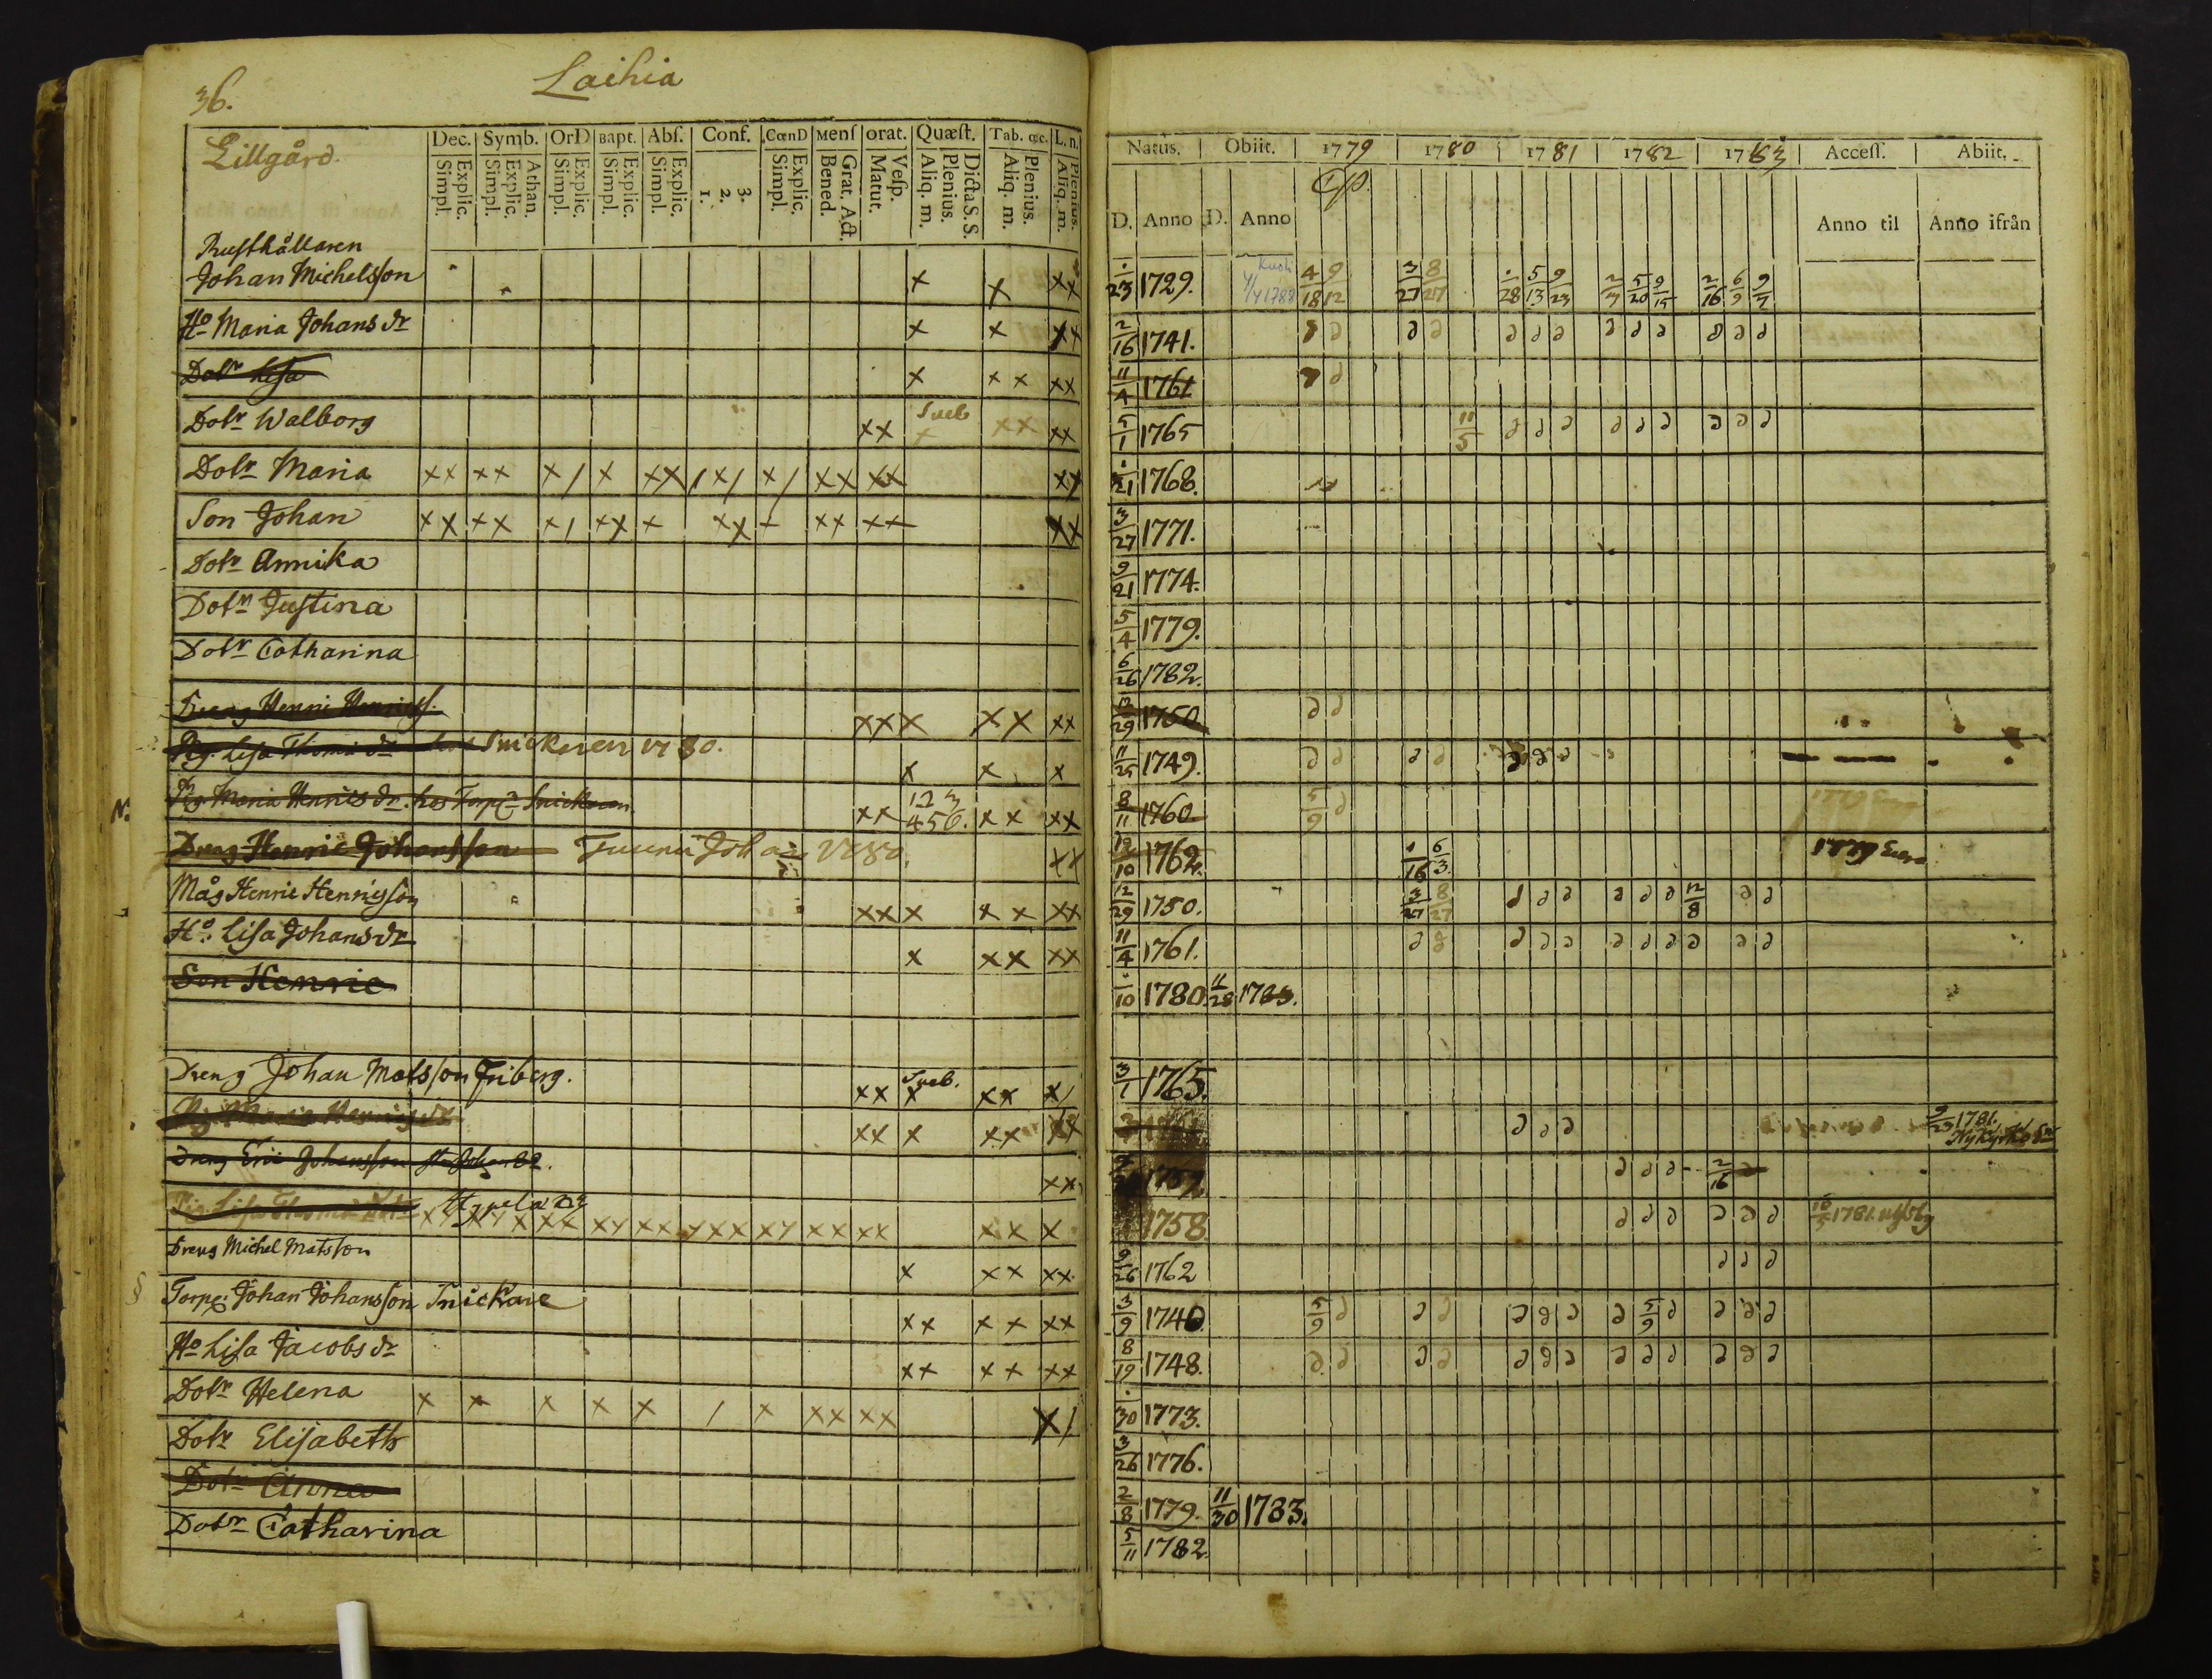 36.
Laihia
Lillgård.
Dec. Symb. OrD Bapt. Abſ. Conf. CœnD Menſ orat. Quæſt. Tab. œc. L. n.
Explic. Simpl. Athan. Explic. Simpl. Explic. Simpl. Explic. Simpl. Explic. Simpl. 3. 2. 1. Explic. Simpl. Grat. Act. Bened. Veſp. Matut. Dicta S. S. Plenius. Aliq. m. Plenius. Aliq. m. Plenius. Aliq. m.
Natus. Obiit. 1779 1780 1781 1782 1783 Acceſſ. Abiit.
D. Anno D. Anno Anno til Anno ifrån
Rusthållaren
Johan Michelsson x x xx 23 1729. Kuoli 4/4 1788 4/18 9/12 3/27 8/27 28 5/13 9/23 2/3 5/20 9/15 2/16 6/9 9/7
Ho Maria Johans dr x x xx 2/16 1741.
Dotr Lisa x xx xx 11/4 1761
Dotr Walborg xx Sveb x xx xx 5/1 1765 11/5
Dotr Maria xx xx x/ x xx / x/ x/ xx xx xx 21 1768.
Son Johan xx xx x/ xx x xx x xx xx xx 3/27 1771.
Dotr Annika 9/21 1774.
Dotr Justina 5/4 1779.
Dotr Catharina 6/26 1782.
Dreng Henric Henricss. xx x xx xx 12/29 1750
Pig. Lisa Thomæ dr hos Snickaren 1780. x x x 11/25 1749.
N. Pig. Maria Henrics dr. hos Torp. Snickaren xx 1 2 3 4 5 6. xx xx 8/11 1760 5/9
Dreng Henric Johansson Johan 1780. xx 12/10 1762. 1/16 6/3
Måg Henric Henricsson xx x xx xx 12/29 1750. 3/27 8/27 12/8
Ho. Lisa Johans dr x xx xx 11/4 1761.
Son Henric 10 1780. 11/28 1783.
Dreng Johan Matsson Friberg. xx Sveb. x xx x/ 3/1 1765.
Pig. Maria Henrics dr xx x xx xx 9/23 1781. Nykyrko Sn
Dreng Eric Johansson xx 1757. 2/16
Pig. Lisa Thomæ dr xx xx x xx xx xx x xx xx xx xx xx x 1758. 1781.
Dreng Michel Matsson x xx xx 9/26 1762
§ Torp. Johan Johansson Snickare xx xx xx 3/9 1740. 5/9 5/9
Ho Lisa Jacobs dr xx xx xx 8/19 1748.
Dotr Helena x x x x x / x xx xx x/ 30 1773.
Dotr Elisabeth 3/26 1776.
Dotr Anna 2/8 1779. 11/30 1783.
Dotr Catharina 5/11 1782.